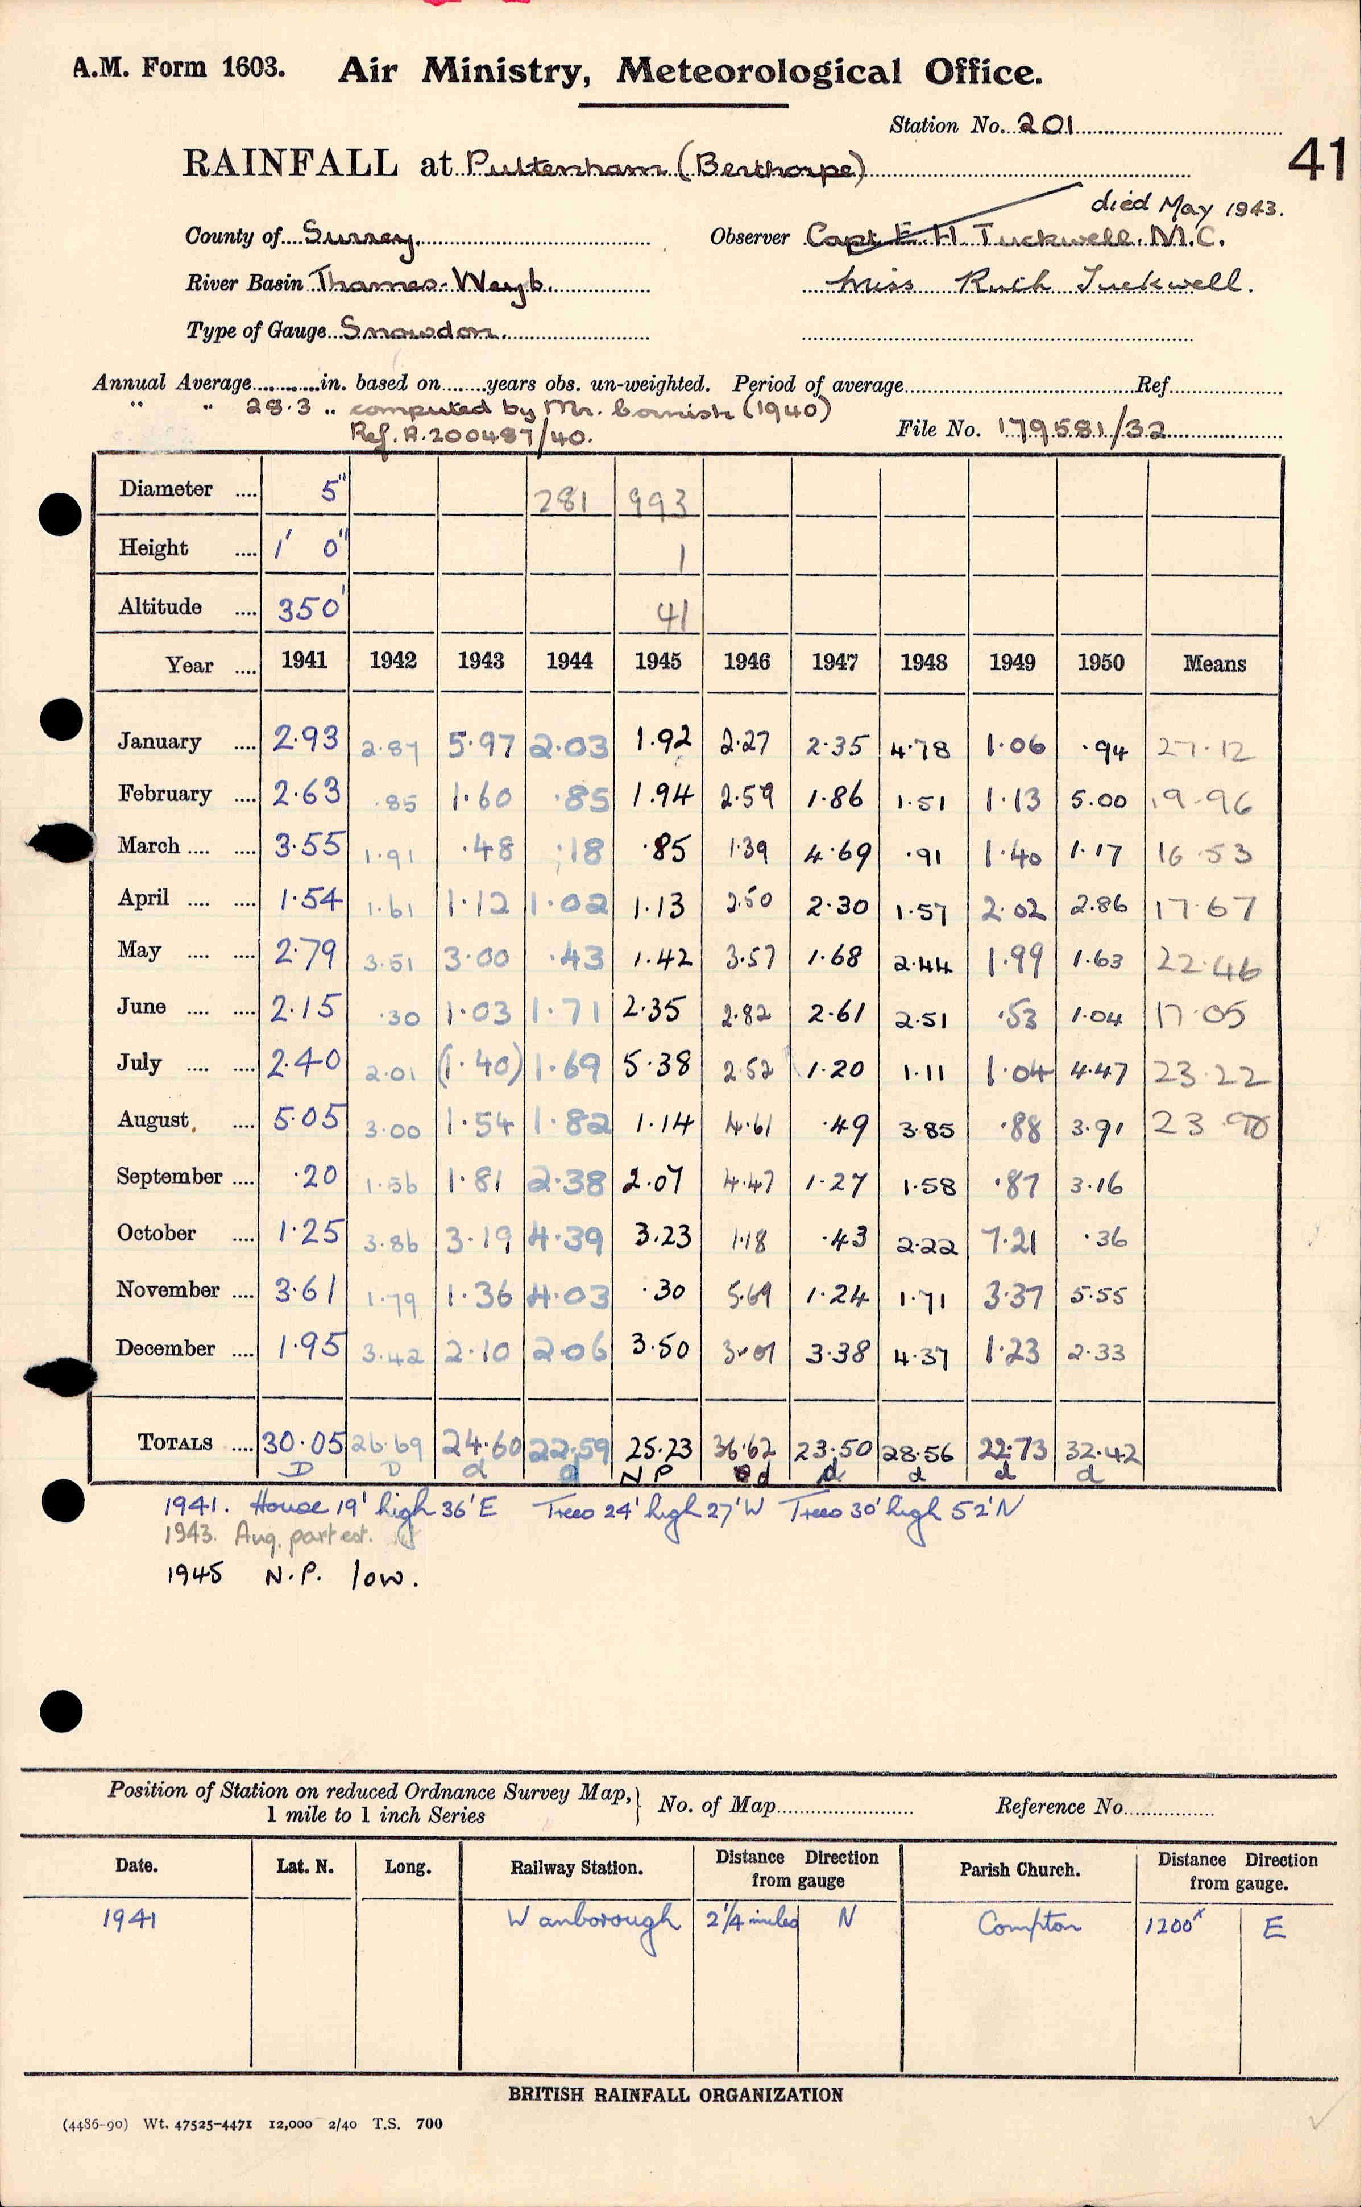 A.M. Form 1603. Air Ministry, Meteorological Office.
Station No. 201
41
RAINFALL at Puttenham (Berthorpe)
died May 1943.
County of Surrey Observer Capt E. H. Tuckwell. M.C.
River Basin Thames-Weyb. Miss Ruth Tuckwell.
Type of Gauge Snowdon.
Annual Average in. based on years obs. un-weighted. Period of average Ref.
" " 28.3 " computed by Mr. Cornish (1940)
Ref. R.200487/40. File No. 179581/32
Diameter .... 5" 281 993
Height .... 1' 0" 1
Altitude .... 350' 41
Year .... 1941 1942 1943 1944 1945 1946 1947 1948 1949 1950 Means
January .... 2.93 2.87 5.97 2.03 1.92 2.27 2.35 4.78 1.06 .94 27.12
February .... 2.63 .85 1.60 .85 1.94 2.59 1.86 1.51 1.13 5.00 19.96
March .... .... 3.55 1.91 .48 .18 .85 1.39 4.69 .91 1.40 1.17 16.53
April .... .... 1.54 1.61 1.12 1.02 1.13 2.50 2.30 1.57 2.02 2.86 17.67
May .... .... 2.79 3.51 3.00 .43 1.42 3.57 1.68 2.44 1.99 1.63 22.46
June .... .... 2.15 .30 1.03 1.71 2.35 2.82 2.61 2.51 .53 1.04 17.05
July .... .... 2.40 2.01 (1.40) 1.69 5.38 2.52 1.20 1.11 1.04 4.47 23.22
August .... 5.05 3.00 1.54 1.82 1.14 4.61 .49 3.85 .88 3.91 23.90
September .... .20 1.56 1.81 2.38 2.07 4.47 1.27 1.58 .87 3.16
October .... 1.25 3.86 3.19 4.39 3.23 1.18 .43 2.22 7.21 .36
November .... 3.61 1.79 1.36 4.03 .30 5.69 1.24 1.71 3.37 5.55
December .... 1.95 3.42 2.10 2.06 3.50 3.01 3.38 4.37 1.23 2.33
TOTALS .... 30.05 26.69 24.60 22.59 25.23 36.62 23.50 28.56 22.73 32.42
D D d d N P d d d d d
1941. House 19' high 36' E Trees 24' high 27' W Trees 30' high 52' N
1943. Aug. part est.
1945 N.P. low.
Position of Station on reduced Ordnance Survey Map, } No. of Map Reference No.
1 mile to 1 inch Series
Date. Lat. N. Long. Railway Station. Distance Direction from gauge Parish Church. Distance Direction from gauge.
1941 Wanborough 2¼ miles N Compton 1200ˣ E
BRITISH RAINFALL ORGANIZATION
(4486-90) Wt. 47525-4471 12,000 2/40 T.S. 700